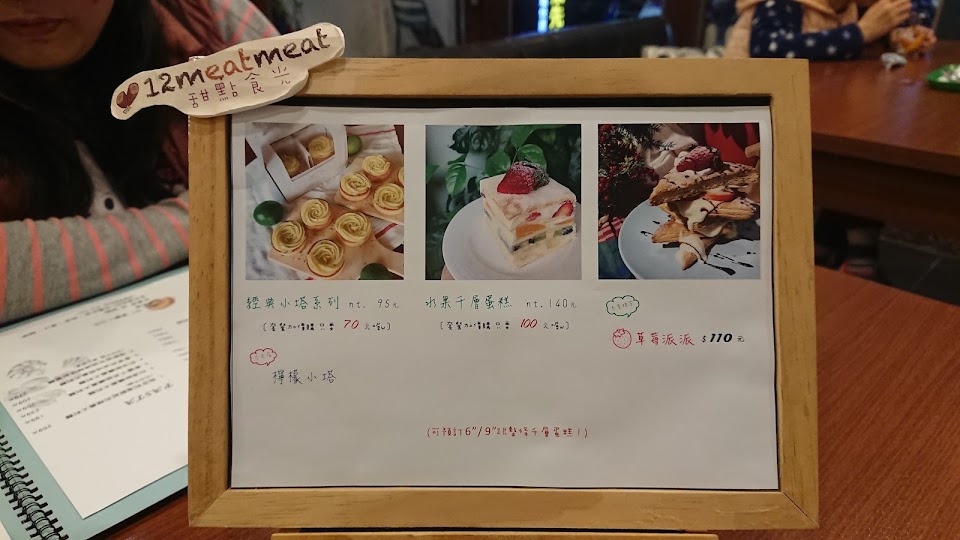 12meatmeat
甜點食光
經典小塔系列 nt. 95元
[套餐加價購只要 70 元呦]
檸檬小塔
水果千層蛋糕 nt. 140元
[套餐加價購只要 100 元呦]
草莓派派 $110元
(可預訂6"/9"吋整條千層蛋糕！)